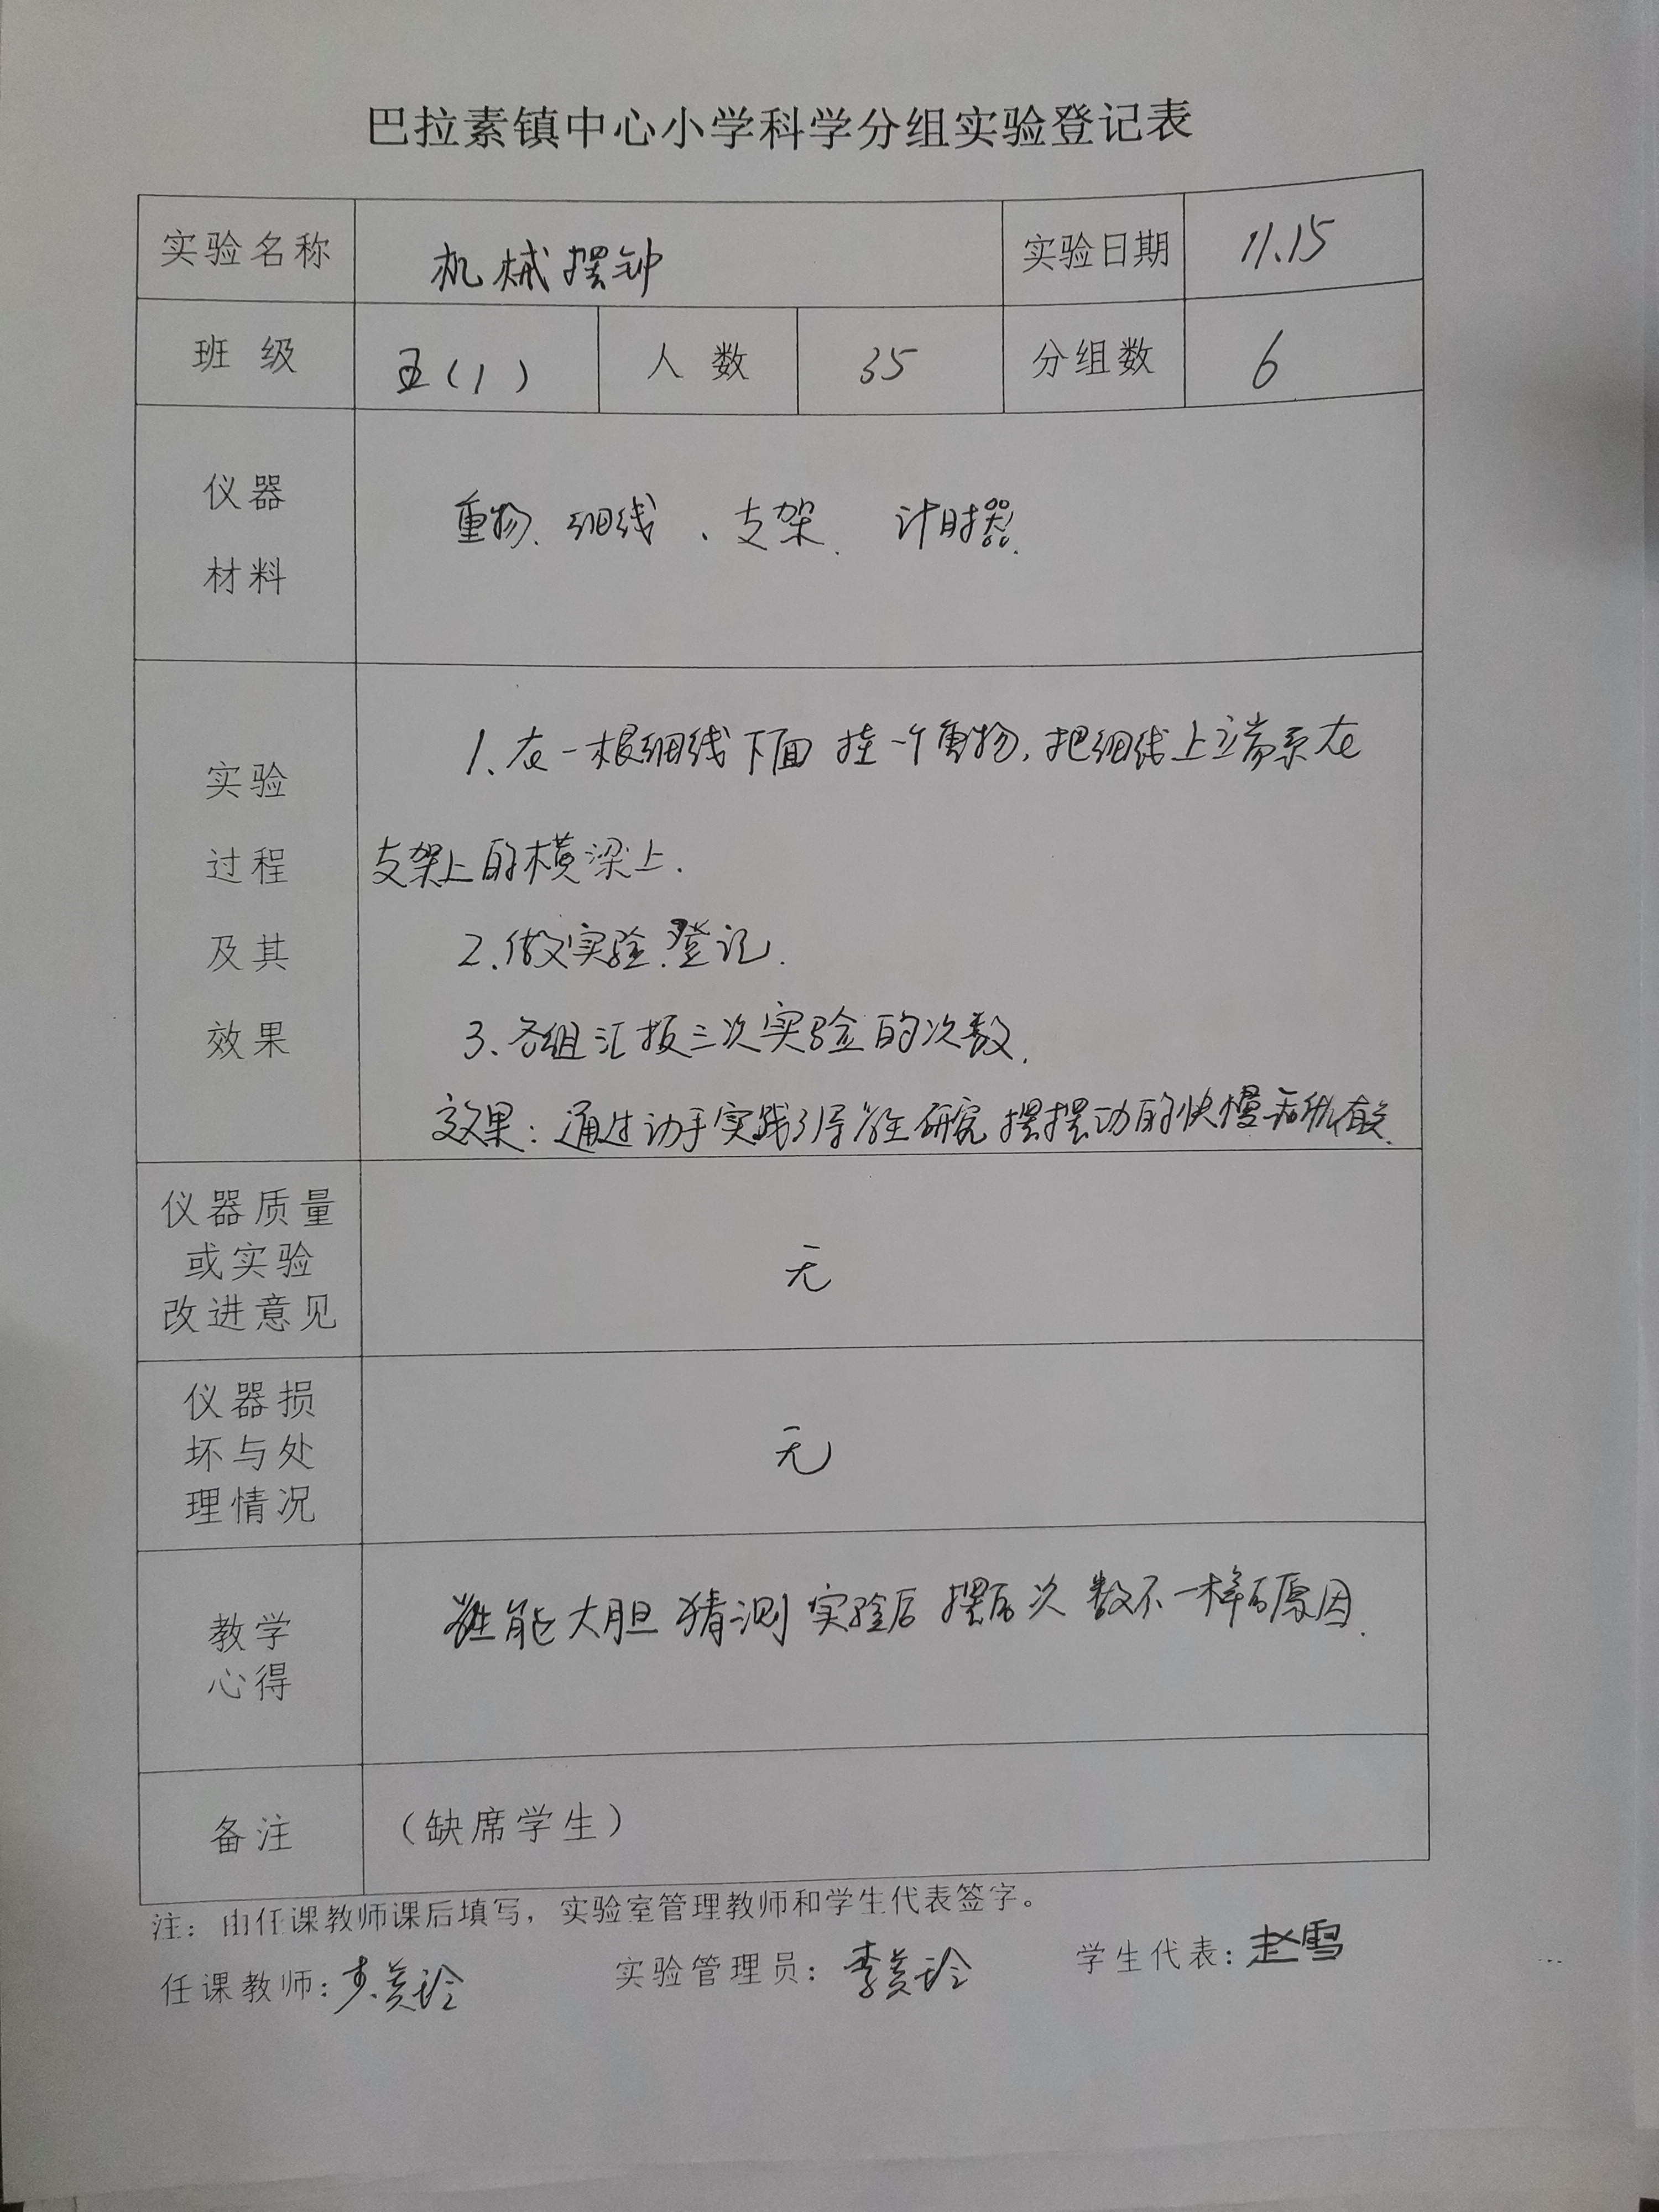 巴拉素镇中心小学科学分组实验登记表
实验名称 机械摆钟 实验日期 11.15
班 级 五(1) 人 数 35 分组数 6
仪器
材料
重物、细线、支架、计时器.
实验
过程
及其
效果
1、在一根细线下面挂一个重物,把细线上端系在
支架上的横梁上.
2、做实验.登记.
3、各组汇报三次实验的次数.
效果:通过动手实践引导学生研究摆摆动的快慢和 有关.
仪器质量
或实验
改进意见
无
仪器损
坏与处
理情况
无
教学
心得
学生能大胆猜测实验后摆的次数不一样的原因.
备注 (缺席学生)
注:由任课教师课后填写,实验室管理教师和学生代表签字。
任课教师: 实验管理员: 学生代表:赵雪